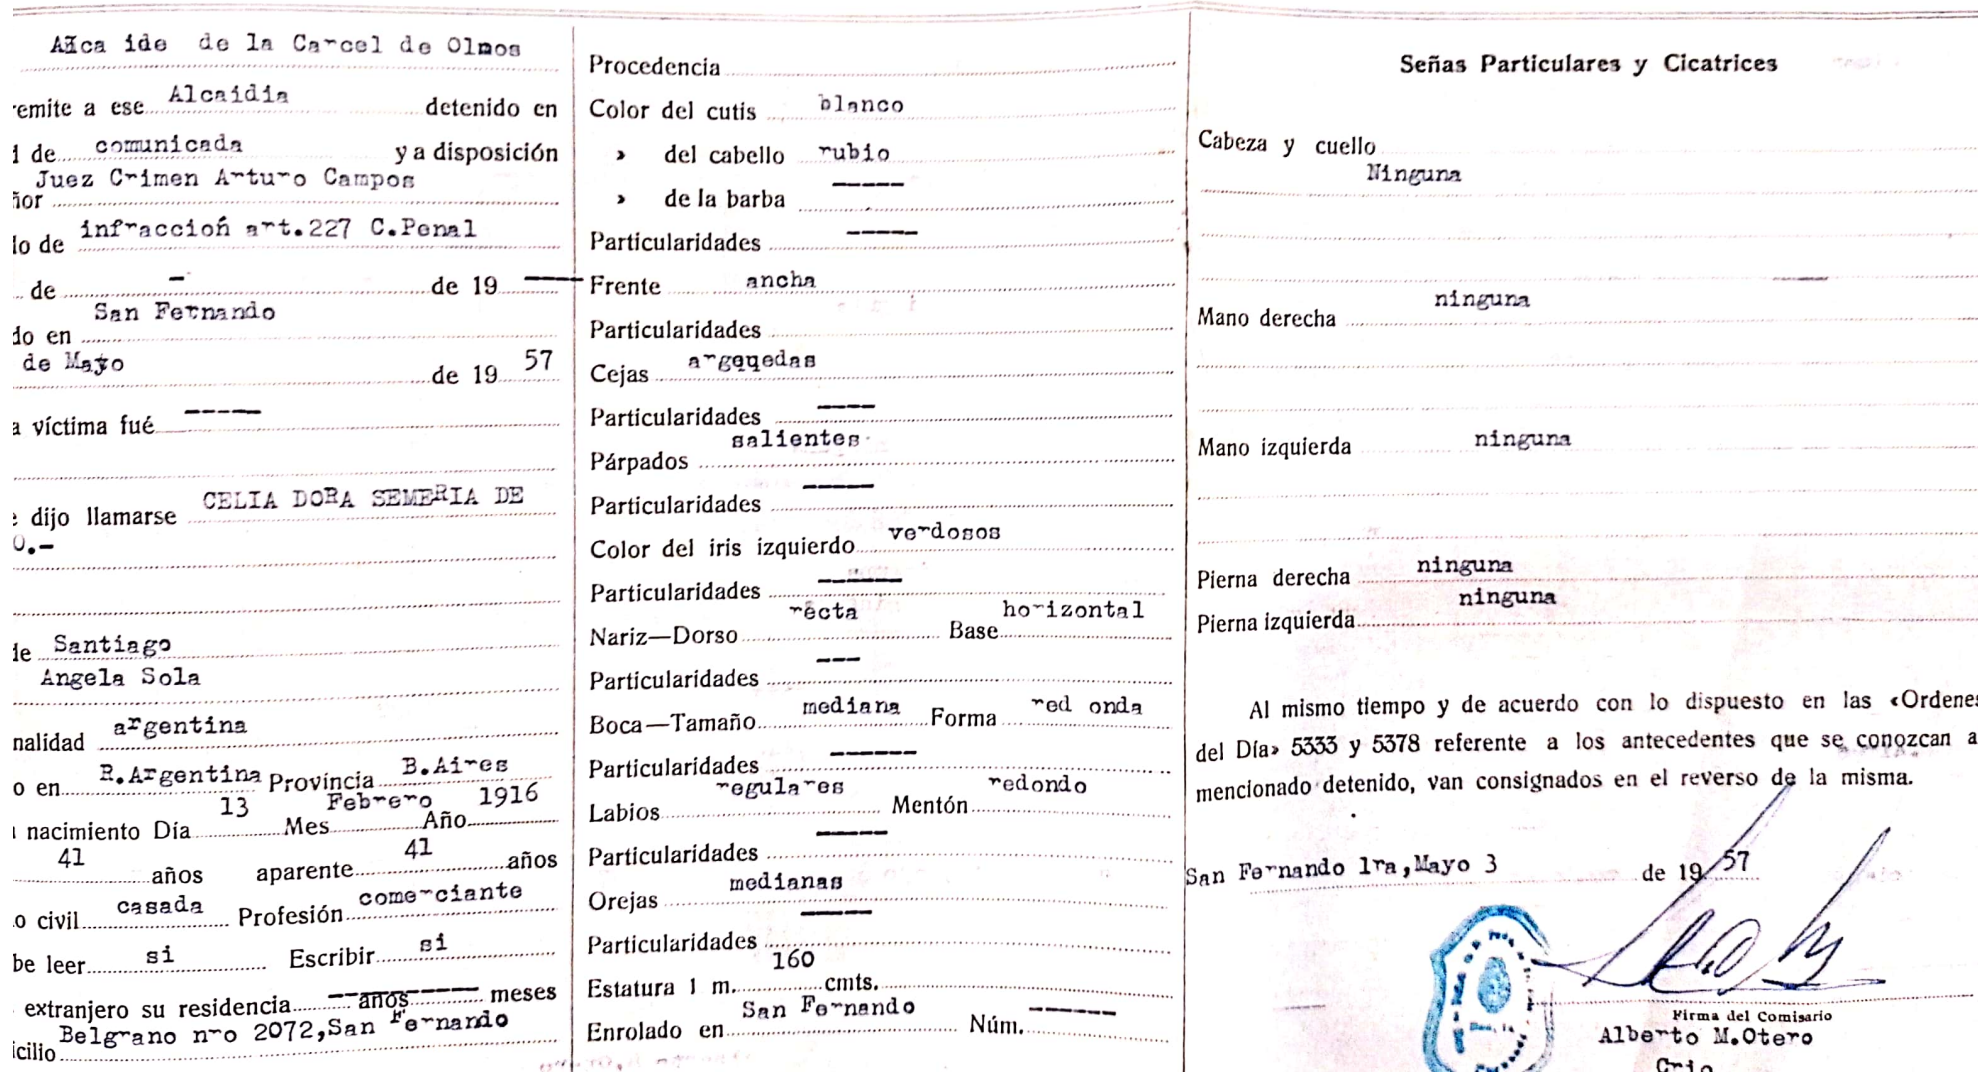 Alca ide de la Carcel de Olmos
remite a ese Alcaidia detenido en
d de comunicada y a disposición
Juez Crimen Arturo Campos
ñor
infracción art.227 C.Penal
do de
de - de 19 ----
San Fernando
do en
de Mayo de 19 57
a víctima fué -----
e dijo llamarse CELIA DORA SEMERIA DE
O.-
de Santiago
Angela Sola
nalidad argentina
o en R.Argentina Provincia B.Aires
nacimiento Día 13 Mes Febrero Año 1916
41 años aparente 41 años
o civil casada Profesión comerciante
be leer si Escribir si
extranjero su residencia ---- años ---- meses
Belgrano nro 2072,San Fernando
icilio
Procedencia
Color del cutis blanco
» del cabello rubio
» de la barba -----
Particularidades -----
Frente ancha
Particularidades
Cejas argquedas
Particularidades ----
Párpados salientes
Particularidades -----
Color del iris izquierdo verdosos
Particularidades ------
Nariz—Dorso recta Base horizontal
Particularidades ---
Boca—Tamaño mediana Forma red onda
Particularidades ------
Labios regulares Mentón redondo
Particularidades -----
Orejas medianas
Particularidades -----
Estatura 1 m. 160 cmts.
Enrolado en San Fernando Núm. ------
Señas Particulares y Cicatrices
Cabeza y cuello
Ninguna
Mano derecha ninguna
Mano izquierda ninguna
Pierna derecha ninguna
Pierna izquierda ninguna
Al mismo tiempo y de acuerdo con lo dispuesto en las «Ordenes
del Día» 5333 y 5378 referente a los antecedentes que se conozcan a
mencionado detenido, van consignados en el reverso de la misma.
San Fernando 1ra,Mayo 3 de 19 57
Firma del Comisario
Alberto M.Otero
Crio